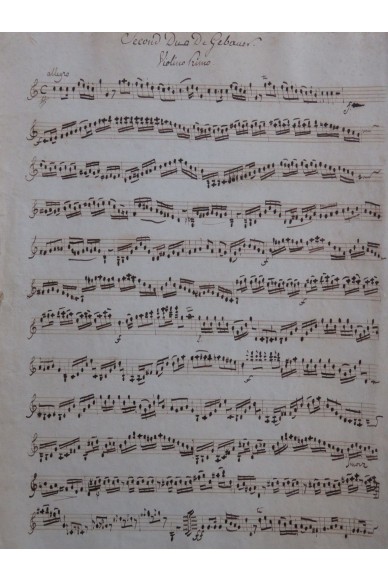 Second Duo De Gebauer.
Violino Primo
allegro